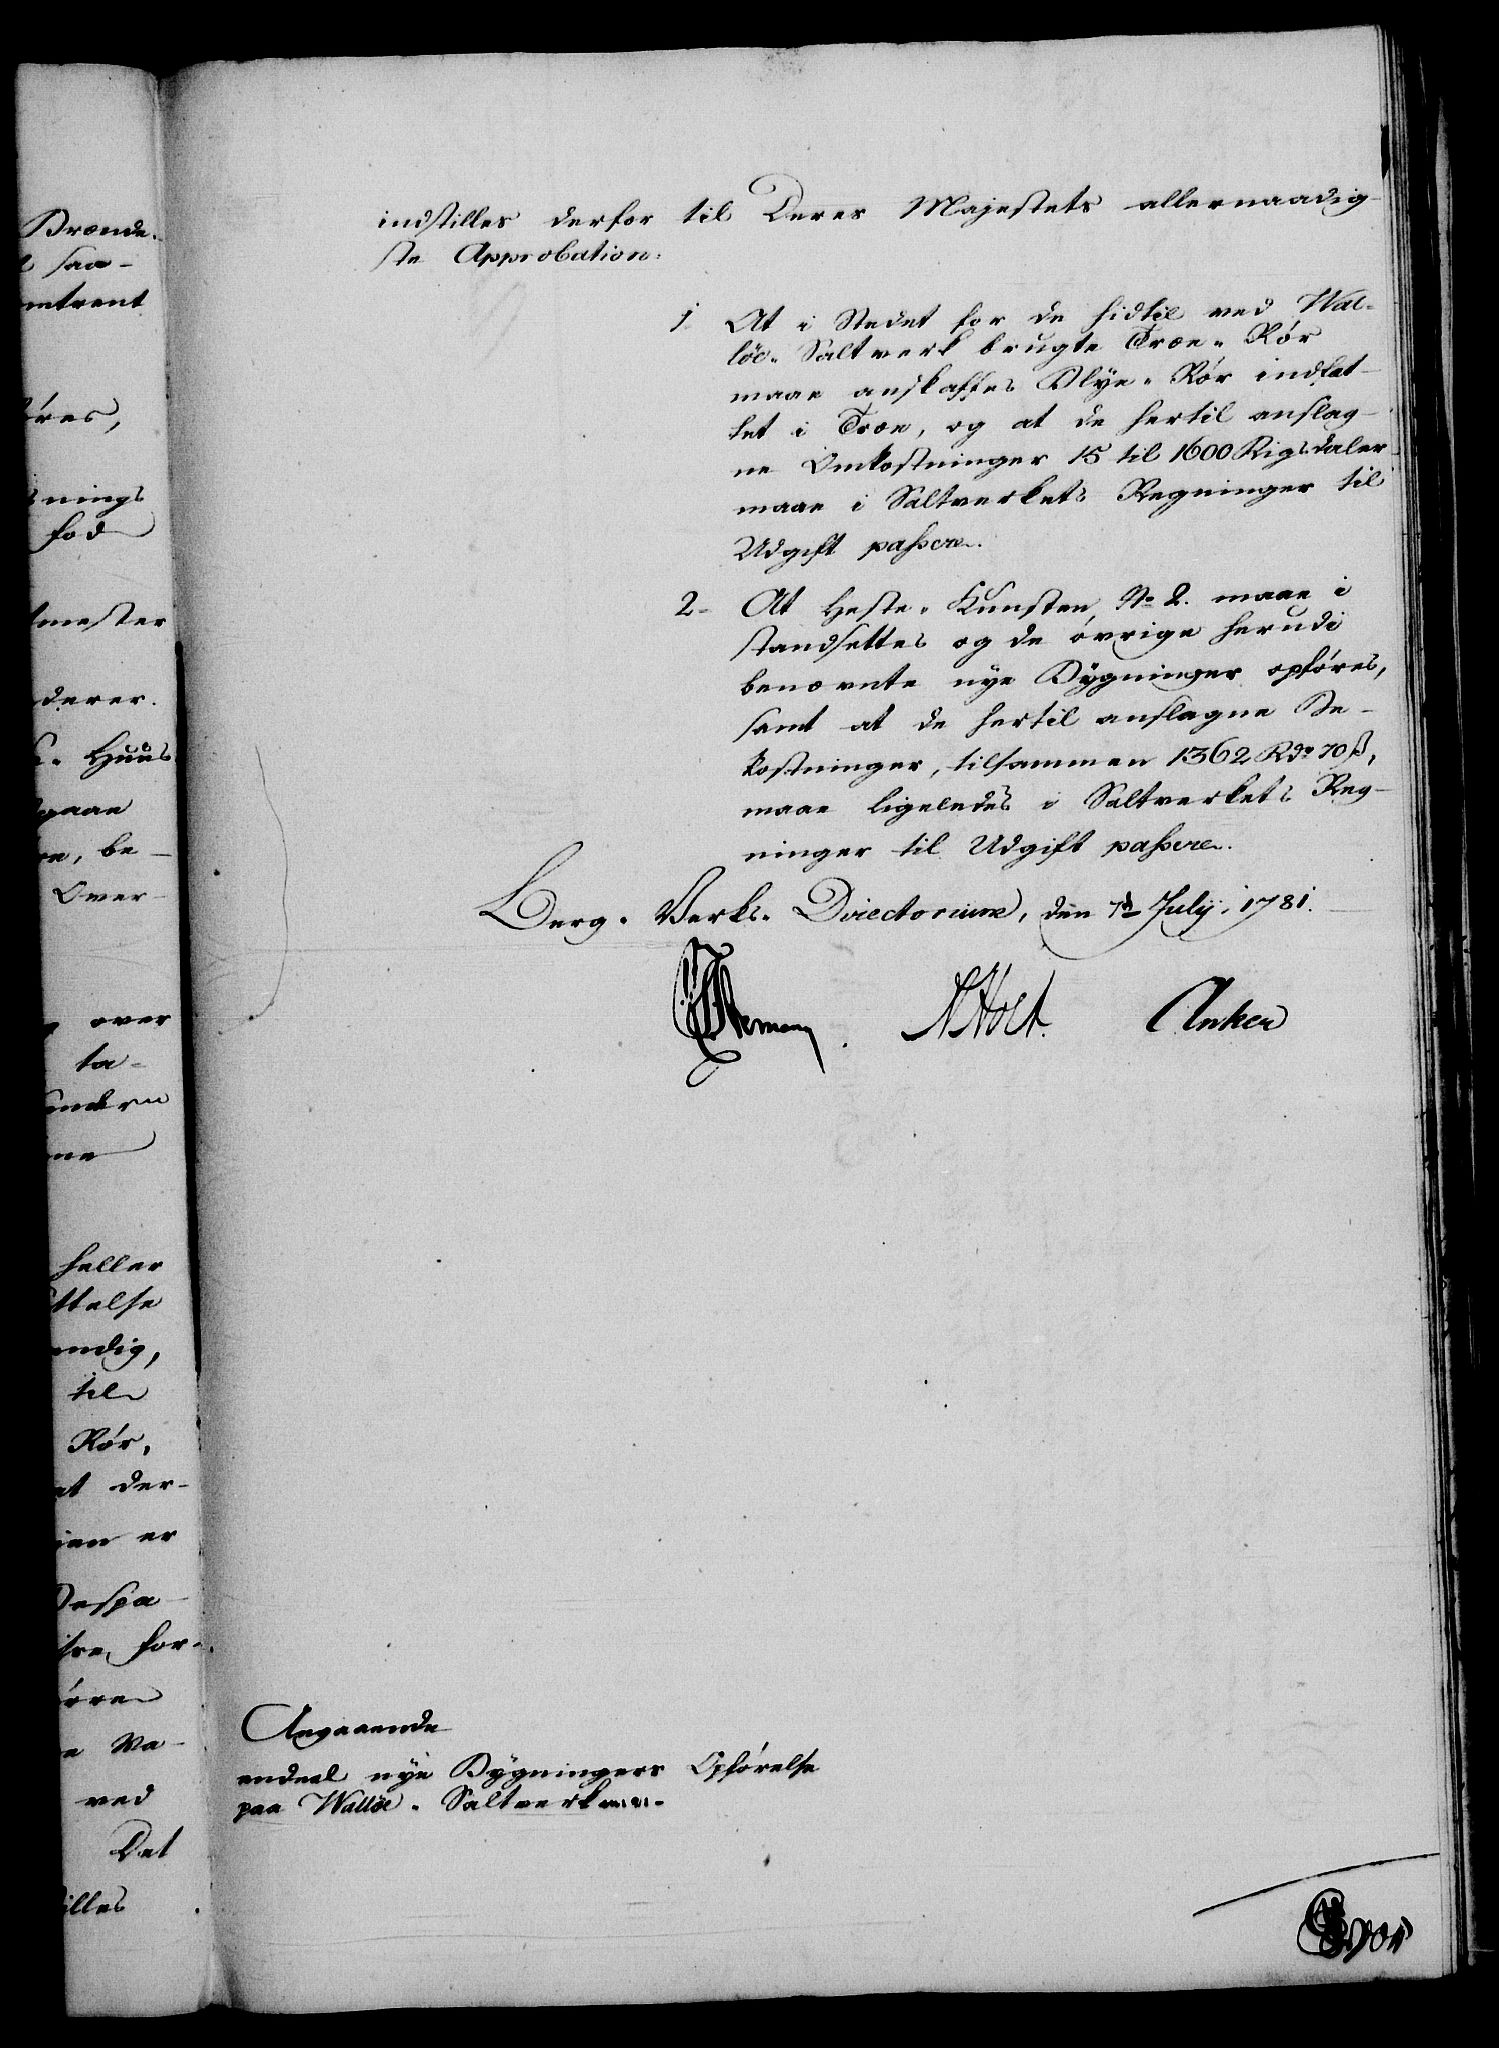 Brænde-
saa-
mtrent
øres,
nings
fod
mester
derer.
Huus
gaae
be-
Over-
over
ta-
heller
ttelse
endig,
til
Rör,
at der-
er
Bespa-
for-
Va-
ved
Det
illes
indstilles derfor til Deres Majestets allernaadig-
ste Approbation:
1. At i Stedet for de hidtil ved Wal-
löe-Saltverk brugte Træe-Rör
maae anskaffes Blye-Rör indfat-
tet i Træe, og at de hertil anslag-
ne Omkostninger 15 til 1600 Rigsdaler
maae i Saltverkets Regninger til
Udgift passere.
2- At Heste-Kunsten No 2. maae i
standsettes og de övrige herudi
benævnte nye Bygninger opföres,
samt at de hertil anslagne Be-
kostninger, tilsammen 1362 Rdr 70 ß,
maae ligeledes i Saltverkets Reg-
ninger til Udgift passere.
Berg-Verks-Directorium, den 7de July, 1781.
NHolt. Anker
Angaaende
endeel nye Bygningers Opförelse
paa Wallöe-Saltverk